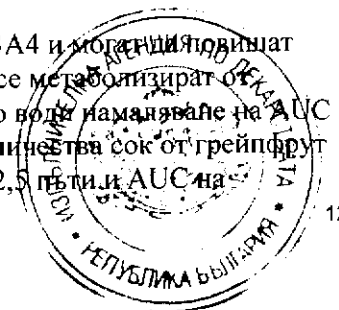 A4 и могат да повишат
се метаболизират от
о води намаляване на AUC
ничества сок от грейпфрут
2,5 пъти и AUC на
12
ИЗПЪЛНИТЕЛНА АГЕНЦИЯ ПО ЛЕКАРСТВАТА
РЕПУБЛИКА БЪЛГАРИЯ